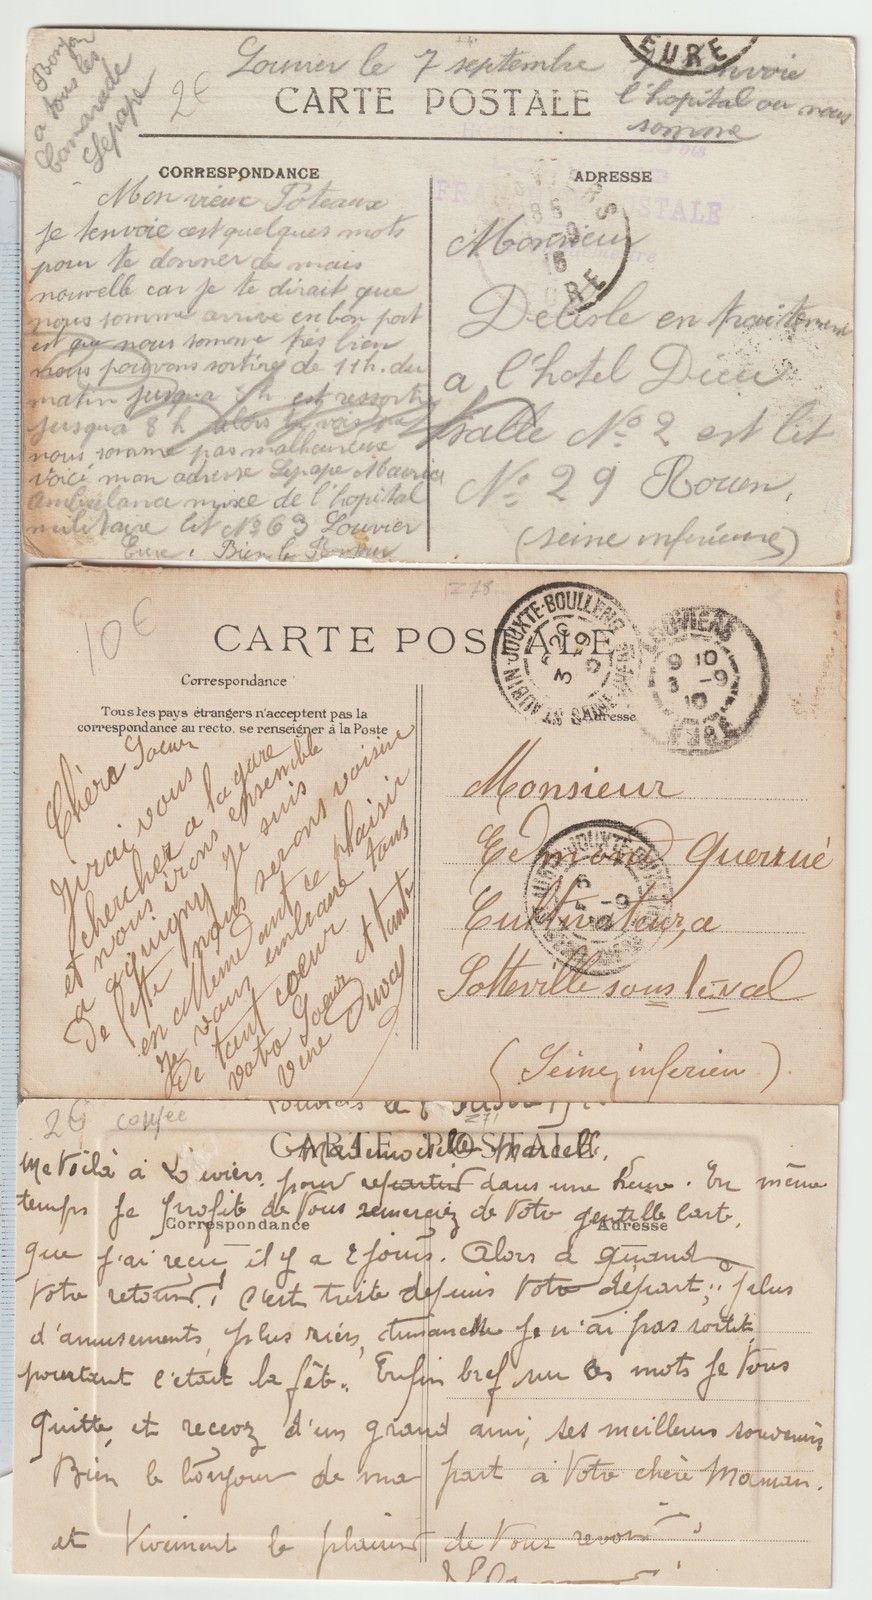 Bonjour
a tous les
Camarade
Lepape
2€
Louvier le 7 septembre
EURE
envoie
l'hopital ou nous
somme
CARTE POSTALE
CORRESPONDANCE
Mon vieux Poteaux
Je tenvoie cest quelques mots
pour te donner de mais
nouvelle car je te dirait que
nous somme arrive en bon port
est que nous somme très bien
nous pouvons sortire de 11h. du
matin jusqua 5h est ressortir
jusqua 8 h alors tu vois que
nous somme pas malheureux
voici mon adresse Lepape Maurice
Ambulance mixe de l'hopital
militaire lit No 63 Louvier
Eure. Bien le Bonjour
ADRESSE
FRANCHISE POSTALE
Monsieur
Delisle en traitement
a l'hotel Dieu
salle No 2 est lit
No 29 Rouen,
(seine inférieure)
10€
Z78
CARTE POSTALE
Correspondance
Tous les pays étrangers n'acceptent pas la
correspondance au recto, se renseigner à la Poste
Chère Soeur
Jirai vous
chercher a la gare
et nous irons ensemble
a aquigny je suis
De fete nous serons voisine
en attendant ce plaisir
Je vous embrasse tous
De tout coeur
votre Soeur et tante
veve Duval
ST AUBIN-JOUXTE-BOULLENG
LOUVIERS
9 10
3 -9
10
EURE
Adresse
Monsieur
Edmond Guerrué
Cultivateur, a
Sotteville sous le val
(Seine, inferieu)
2€ coupée
Z71
CARTE POSTALE
Mademoiselle Marcelle,
Me voilà à Louviers, pour repartir dans une heure. En même
temps je profite de vous remerciez de votre gentille carte,
Correspondance
Adresse
que j'ai reçu il y a 2 jours. Alors à quand
votre retour! c'est triste depuis votre départ; plus
d'amusements, plus rien, dimanche je n'ai pas sortit
pourtant c'était la fête. Enfin bref sur ces mots je vous
quitte, et recevez d'un grand ami, ses meilleurs souvenirs
Bien le bonjour de ma part à votre chère Maman.
et vivement le plaisir de vous revoir